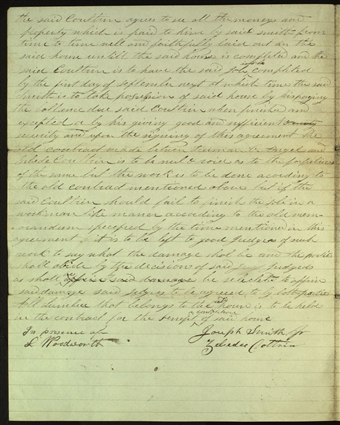 the said Coultrin agrees to use all the moneys and
property which is paid to him by said Smith from
time to time well and faithfully laid out on the
said house untill the said house is completed and the
said Coultrin is to have the said job completed
by the first day of September next at which time the said
Smith is to take possession of said house by
the ballance due said Coultrin when finished and
excepted or by his giving good and sufficient
security and upon the signing of this agreement the
old contract made between Truman O. Angel and
Zebedee Coultrin is to be null & void as to the
of the same but the work is to be done acording to
the old contract mentioned above but if the
said Coultrin should fail to finish the job in a
workman like manner according to the old mem-
orandum by the time mention in this
agreement it is to be left to good Judges of such
work to say what the damage shall be and the parties
shall abide by the decisions of said Judges
as what said damage
said Judges to be agreed to by the parties
All lumber that belongs to the house is to be held
in the contract for the benefit of said house
In presence of
L Woodworth
Joseph Smith Jr
Zebedee Coltrin